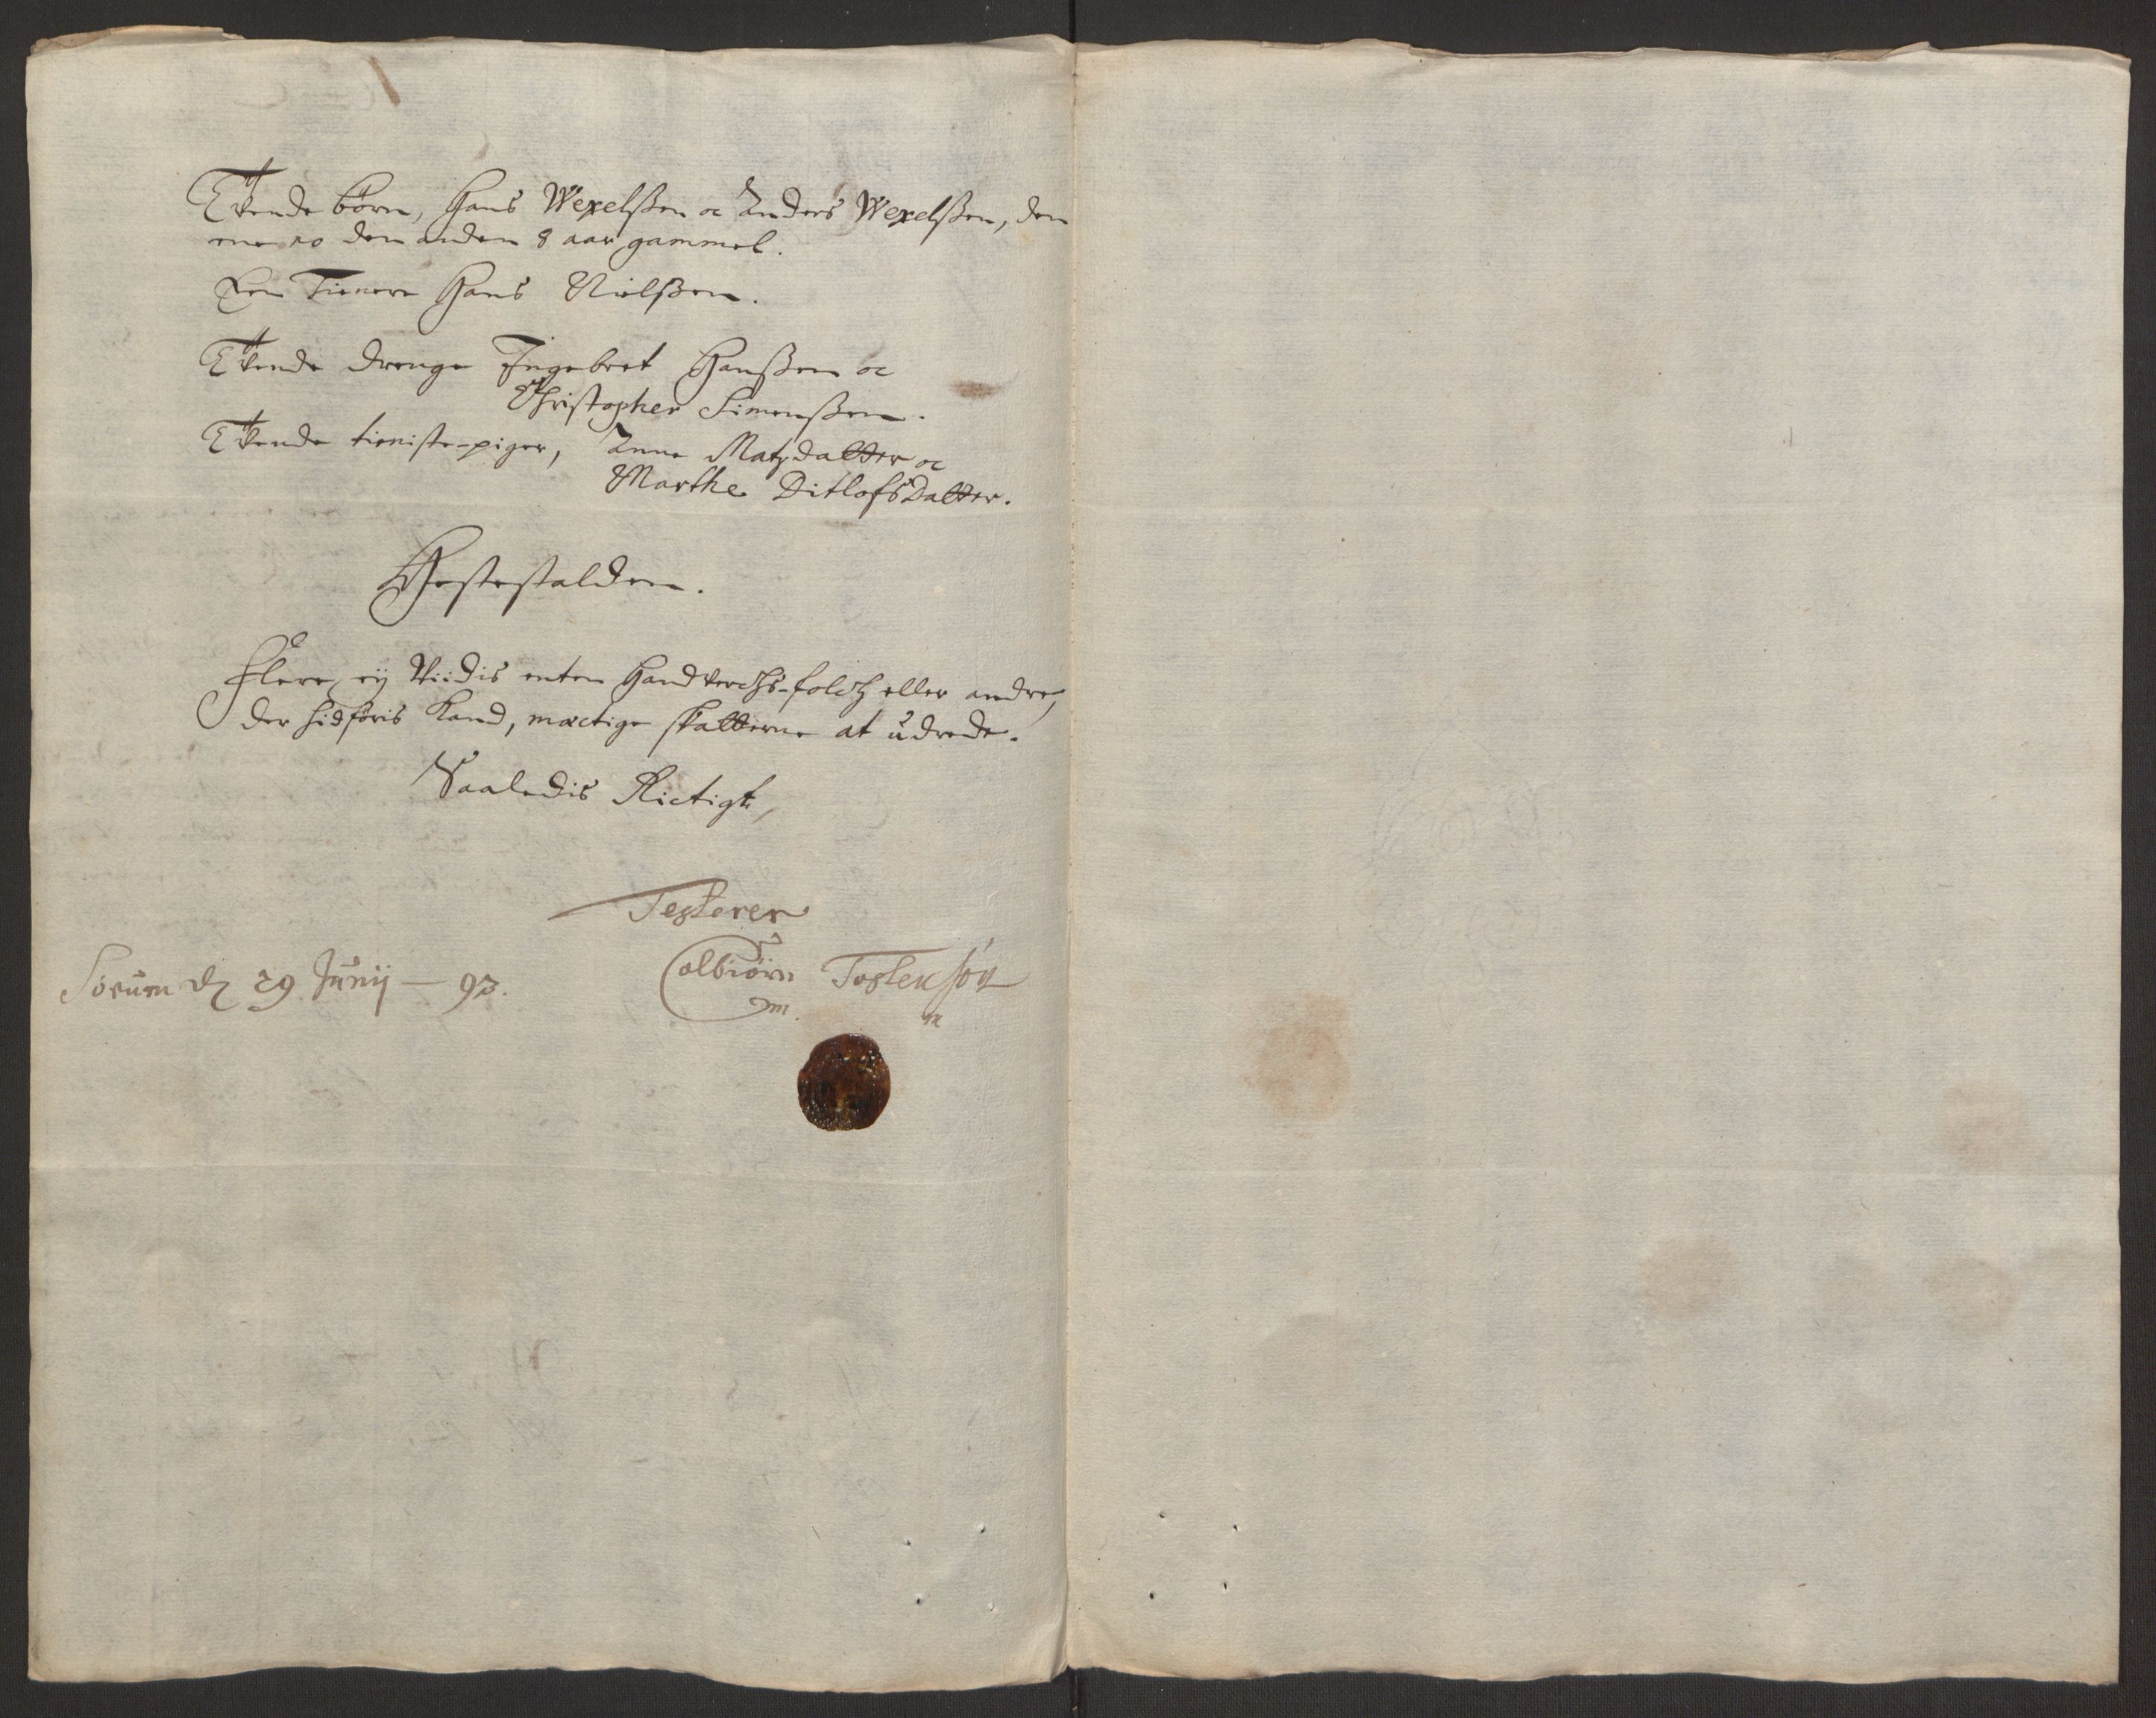 Tvende börn, Hans Wexelßen oc Anders Wexelßen, den
ene 10 den anden 8 aar gammel.
Een Tienere Hans Nielßen.
Tvende drenge Ingebret Hanßen oc
Christopher Simenßen.
Tvende tieniste-piger, Anne Matzdatter oc
Marthe Ditlofsdatter.
Hestestalden.
Flere eÿ viidis enten Handverchs-folch eller andre,
der hidföris kand, mæctige skatterne at udrede.
Saaledis Rictigt,
Testerer
Colbiörn Tostensön
Sörum dz 29 Junij - 93.
m. m